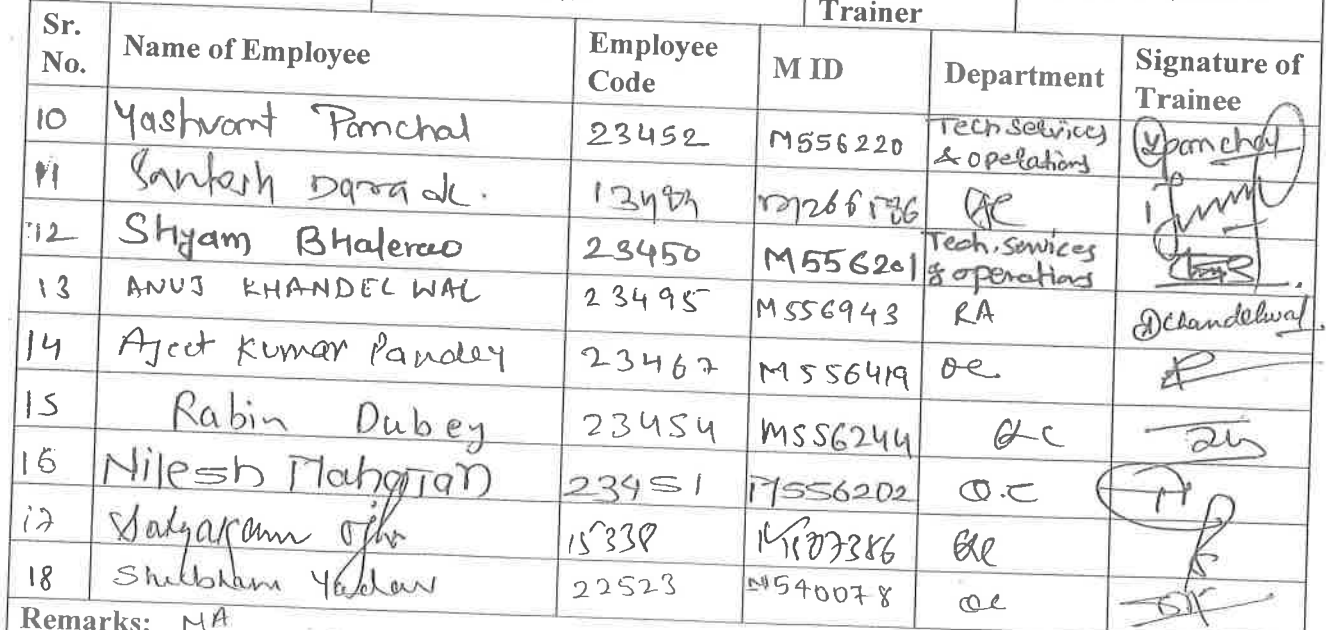 Trainer
Sr. No. Name of Employee Employee Code M ID Department Signature of Trainee
10 Yashvant Panchal 23452 M556220 Tech services & operations Ypanchal
11 Santosh Darade.
12 Shyam Bhalerao 23450 M556201 Tech. services & operations
13 ANUJ KHANDELWAL 23495 M556943 RA AKhandelwal
14 Ajeet Kumar Pandey 23467 M556419 QC
15 Rabin Dubey 23454 M556244 QC
16 Nilesh Mahajan 23451 M556202 Q.C
17 Satyakam Ojha 15338 QC
18 Shubham Yadav 22523 M540078 QC
Remarks: NA